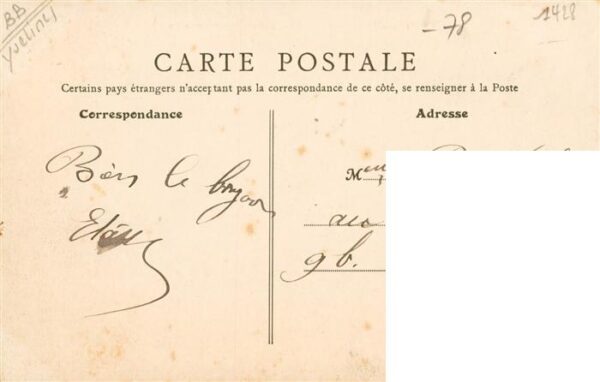 BB
Yvelines
- 78
1428
CARTE POSTALE
Certains pays étrangers n'acceptant pas la correspondance de ce côté, se renseigner à la Poste
Correspondance
Adresse
Bien le bonjour
M
au
g b.